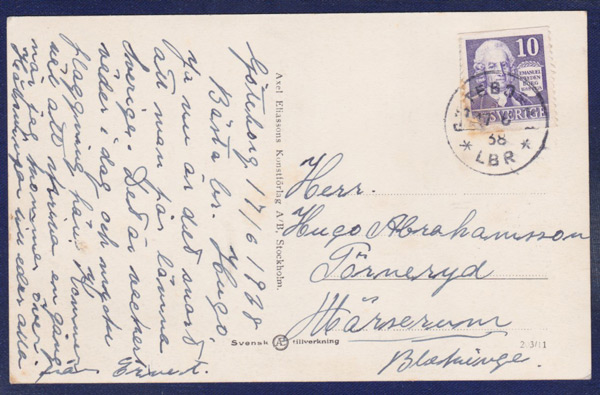 Göteborg 17/6 1938
Bästa br. Hugo!
Ja nu är det snart
att man får lämna
Sverige. Det är vackert
väder i dag och mycke
flaggning här. Kommer
väl att skriva en gång
när jag kommer över.
Hälsningar till eder alla
Axel Eliassons Konstförlag A/B, Stockholm.
Svensk AE tillverkning
10
EMANUEL
SWEDEN
BORG
SVERIGE
GÖTEBORG
17 6
38
* LBR *
Herr.
Hugo Abrahamsson
Törneryd
Härserum
Blekinge.